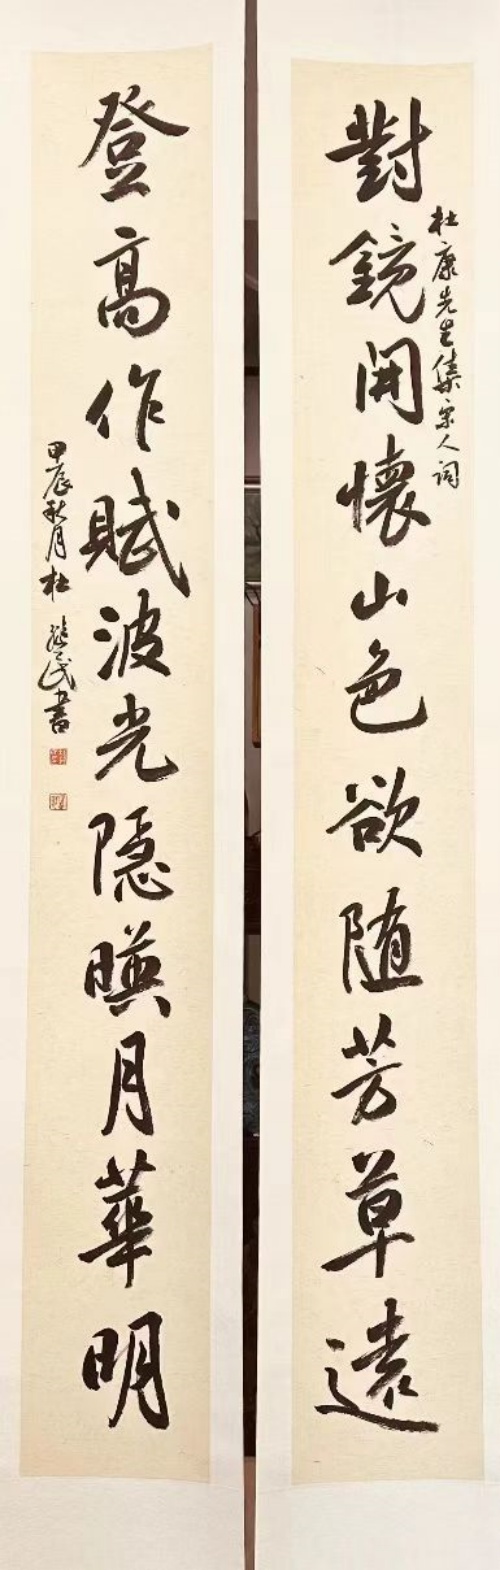 對鏡開懷山色欲随芳草遠
杜康先生集宋人词
登高作賦波光隱暎月華明
甲辰秋月杜民書